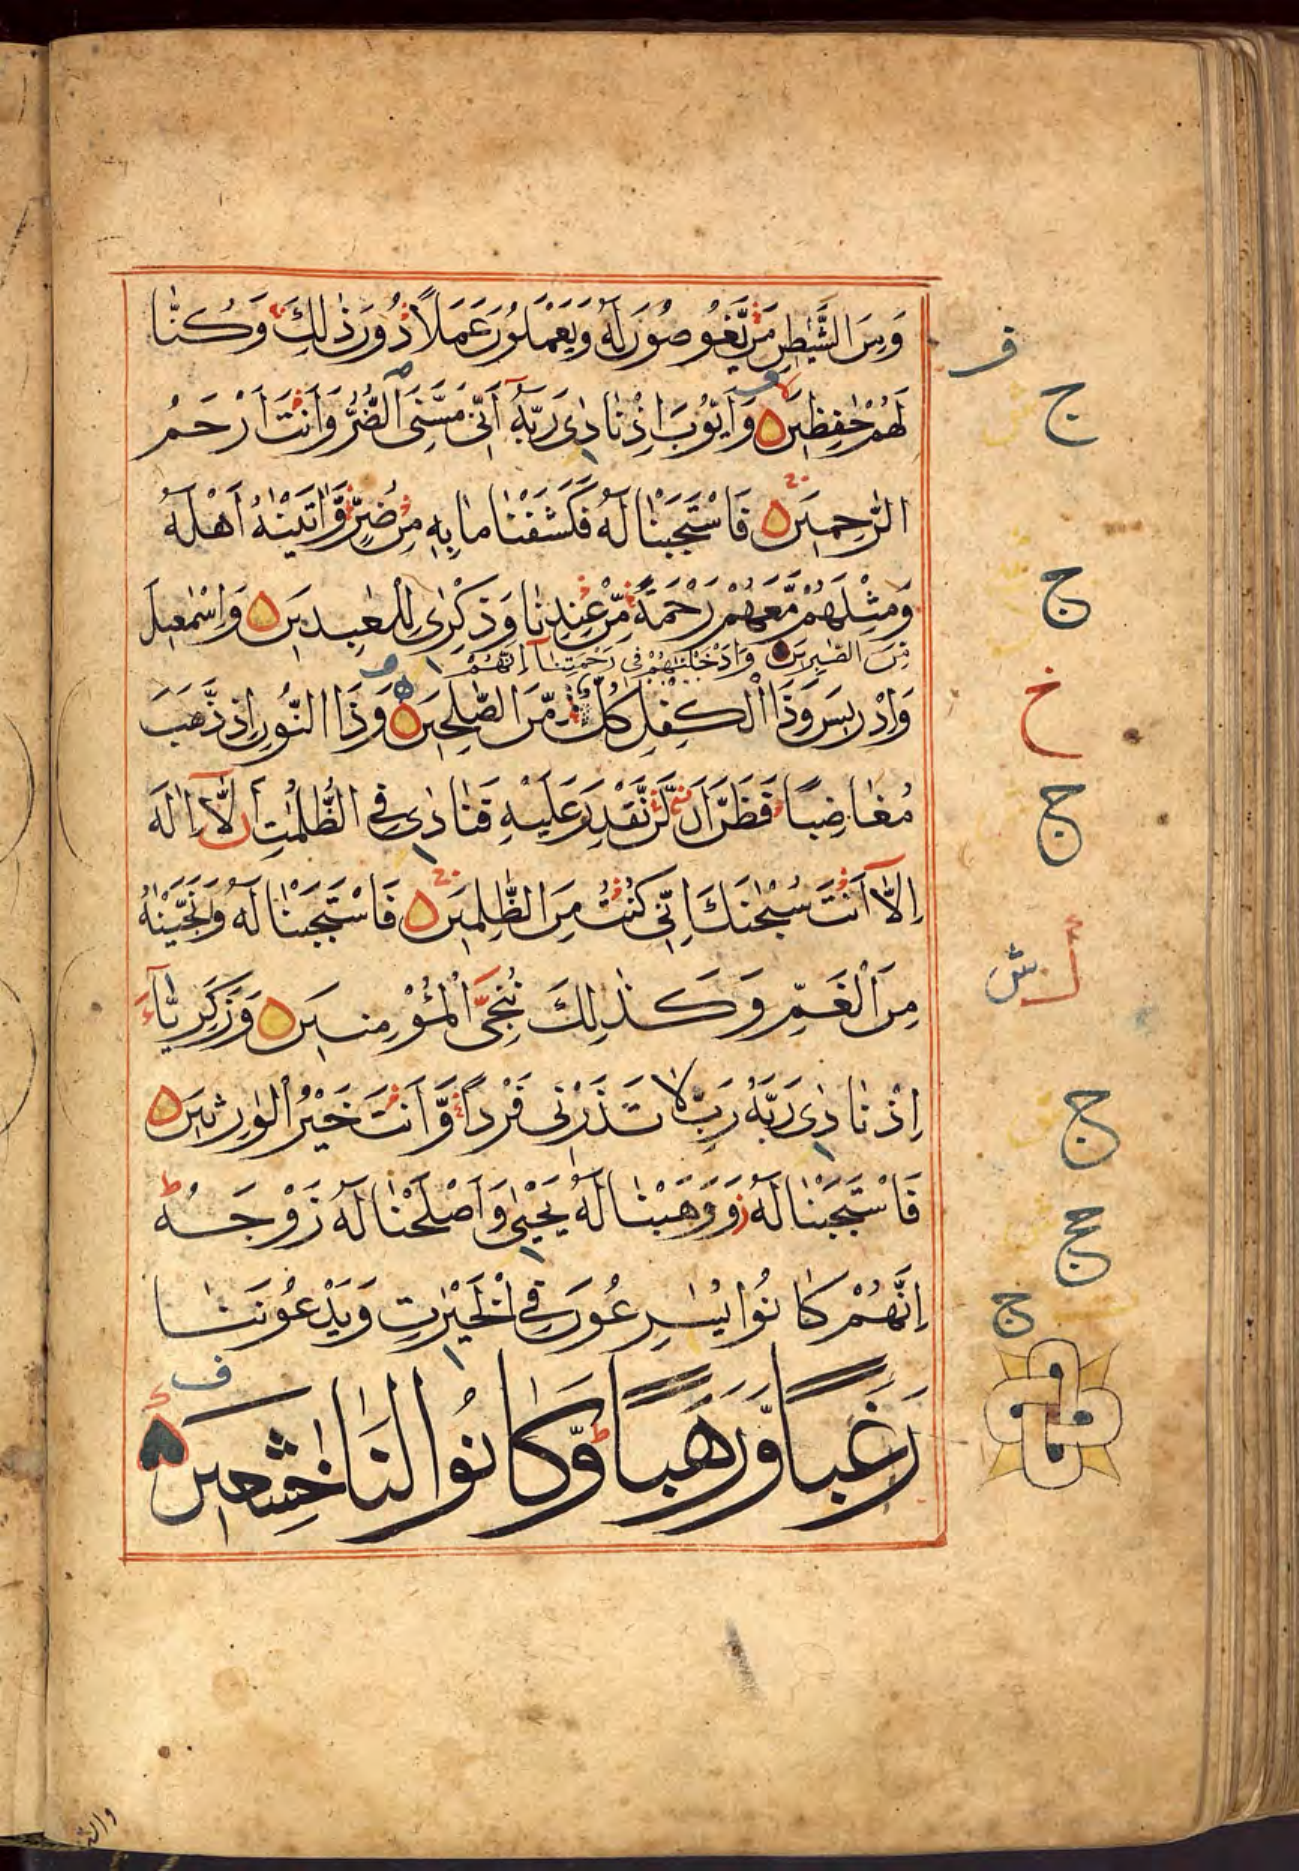 وَمِنَ الشَّيٰطِينِ مَنْ يَّغُوصُونَ لَهٗ وَيَعْمَلُونَ عَمَلًا دُونَ ذٰلِكَ وَكُنَّا
لَهُمْ حٰفِظِينَ وَاَيُّوبَ اِذْ نَادٰى رَبَّهٗٓ اَنِّى مَسَّنِىَ الضُّرُّ وَاَنْتَ اَرْحَمُ
الرّٰحِمِينَ فَاسْتَجَبْنَا لَهٗ فَكَشَفْنَا مَا بِهٖ مِنْ ضُرٍّ وَّاٰتَيْنٰهُ اَهْلَهٗ
وَمِثْلَهُمْ مَّعَهُمْ رَحْمَةً مِّنْ عِنْدِنَا وَذِكْرٰى لِلْعٰبِدِينَ وَاِسْمٰعِيلَ
مِّنَ الصّٰبِرِينَ وَاَدْخَلْنٰهُمْ فِى رَحْمَتِنَآ اِنَّهُمْ
وَاِدْرِيسَ وَذَا الْكِفْلِ كُلٌّ مِّنَ الصّٰلِحِينَ وَذَا النُّونِ اِذْ ذَّهَبَ
مُغَاضِبًا فَظَنَّ اَنْ لَّنْ نَّقْدِرَ عَلَيْهِ فَنَادٰى فِى الظُّلُمٰتِ اَنْ لَّآ اِلٰهَ
اِلَّآ اَنْتَ سُبْحٰنَكَ اِنِّى كُنْتُ مِنَ الظّٰلِمِينَ فَاسْتَجَبْنَا لَهٗ وَنَجَّيْنٰهُ
مِنَ الْغَمِّ وَكَذٰلِكَ نُنْجِى الْمُؤْمِنِينَ وَزَكَرِيَّآءَ
اِذْ نَادٰى رَبَّهٗ رَبِّ لَا تَذَرْنِى فَرْدًا وَّاَنْتَ خَيْرُ الْوٰرِثِينَ
فَاسْتَجَبْنَا لَهٗ وَوَهَبْنَا لَهٗ يَحْيٰى وَاَصْلَحْنَا لَهٗ زَوْجَهٗ ط
اِنَّهُمْ كَانُوا يُسٰرِعُونَ فِى الْخَيْرٰتِ وَيَدْعُونَنَا
رَغَبًا وَّرَهَبًا ط وَّكَانُوا لَنَا خٰشِعِينَ
ف
ج
ج
خ
ج
ش
ج
ج
ج